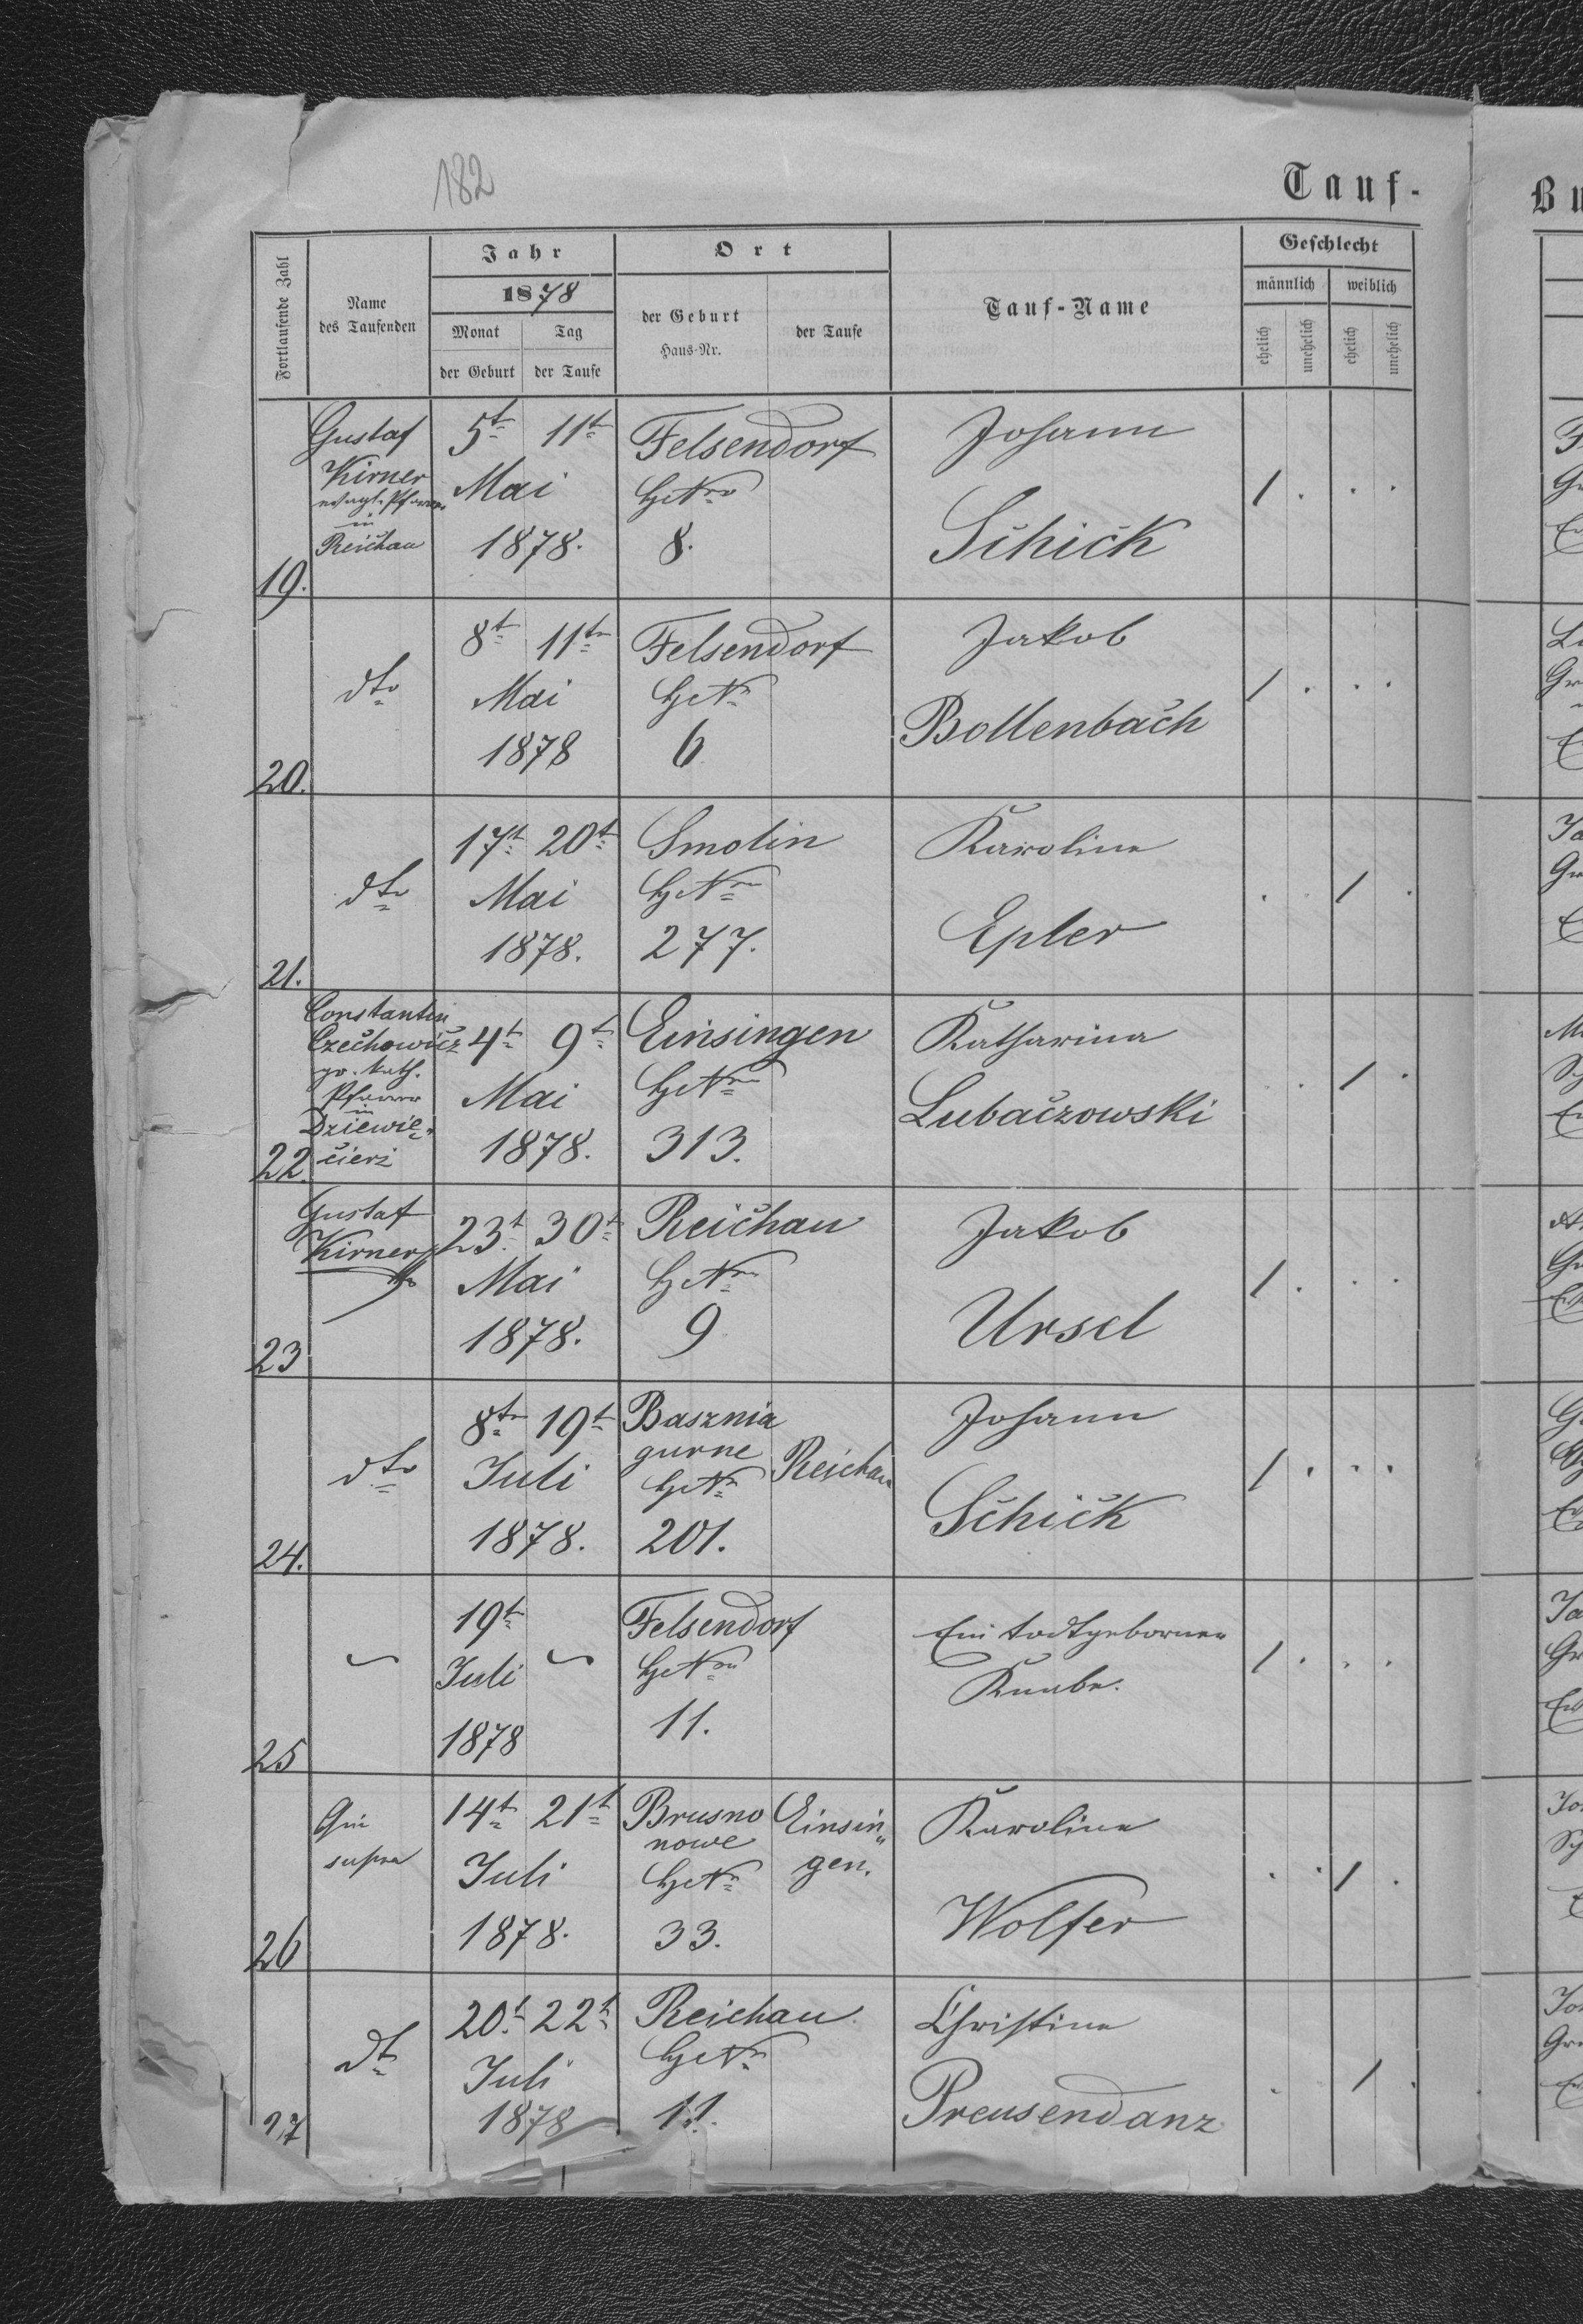 182
Tauf-
Bu
Fortlaufende Zahl
Name
des Taufenden
Jahr
1878
Monat
Tag
der Geburt
der Taufe
Ort
der Geburt
Haus-Nr.
der Taufe
Tauf-Name
Geschlecht
männlich
weiblich
ehelich
unehelich
ehelich
unehelich
19.
Gustaf
Kirner
evagl. Pfarrer
in
Reichau
5t 11t
Mai
1878.
Felsendorf
HNro
8.
Johann
Schick
1 . . .
20.
dto
8t 11t
Mai
1878
Felsendorf
HNr
6.
Jakob
Bollenbach
1 . . .
21.
dto
17t 20t
Mai
1878.
Smolin
HNro
277.
Karoline
Epler
. . 1 .
22.
Constantin
Czechowicz
gr. kath.
Pfarrer
in
Dziewię-
cierz
4t 9t
Mai
1878.
Einsingen
HNro
313.
Katharina
Lubaczowski
. 1 .
23
Gustaf
Kirner
23t 30t
Mai
1878.
Reichau
HNro
9
Jakob
Ursel
1 . . .
24.
dto
8t 19t
Juli
1878.
Basznia
gurne
HNr
201.
Reichau
Johann
Schick
1 . . .
25
19t
Juli
1878
Felsendorf
HNro
11.
Ein todtgeborner
Knabe.
1 . . .
26
Qui
supra
14t 21t
Juli
1878.
Brusno
nowe
HNr
33.
Einsin"
gen.
Karoline
Wolfer
. . 1 .
27
dt
20t 22t
Juli
1878
Reichau
HNr
11.
Christine
Preusendanz
. 1 .